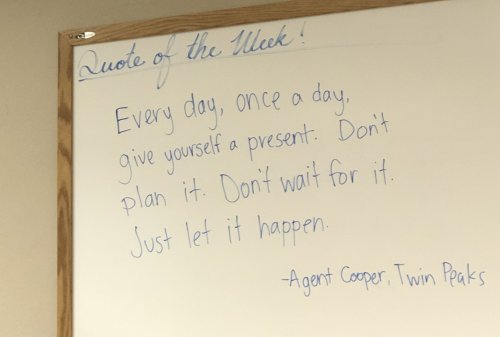 Quote of the Week!
Every day, once a day,
give yourself a present. Don't
plan it. Don't wait for it.
Just let it happen.
-Agent Cooper, Twin Peaks